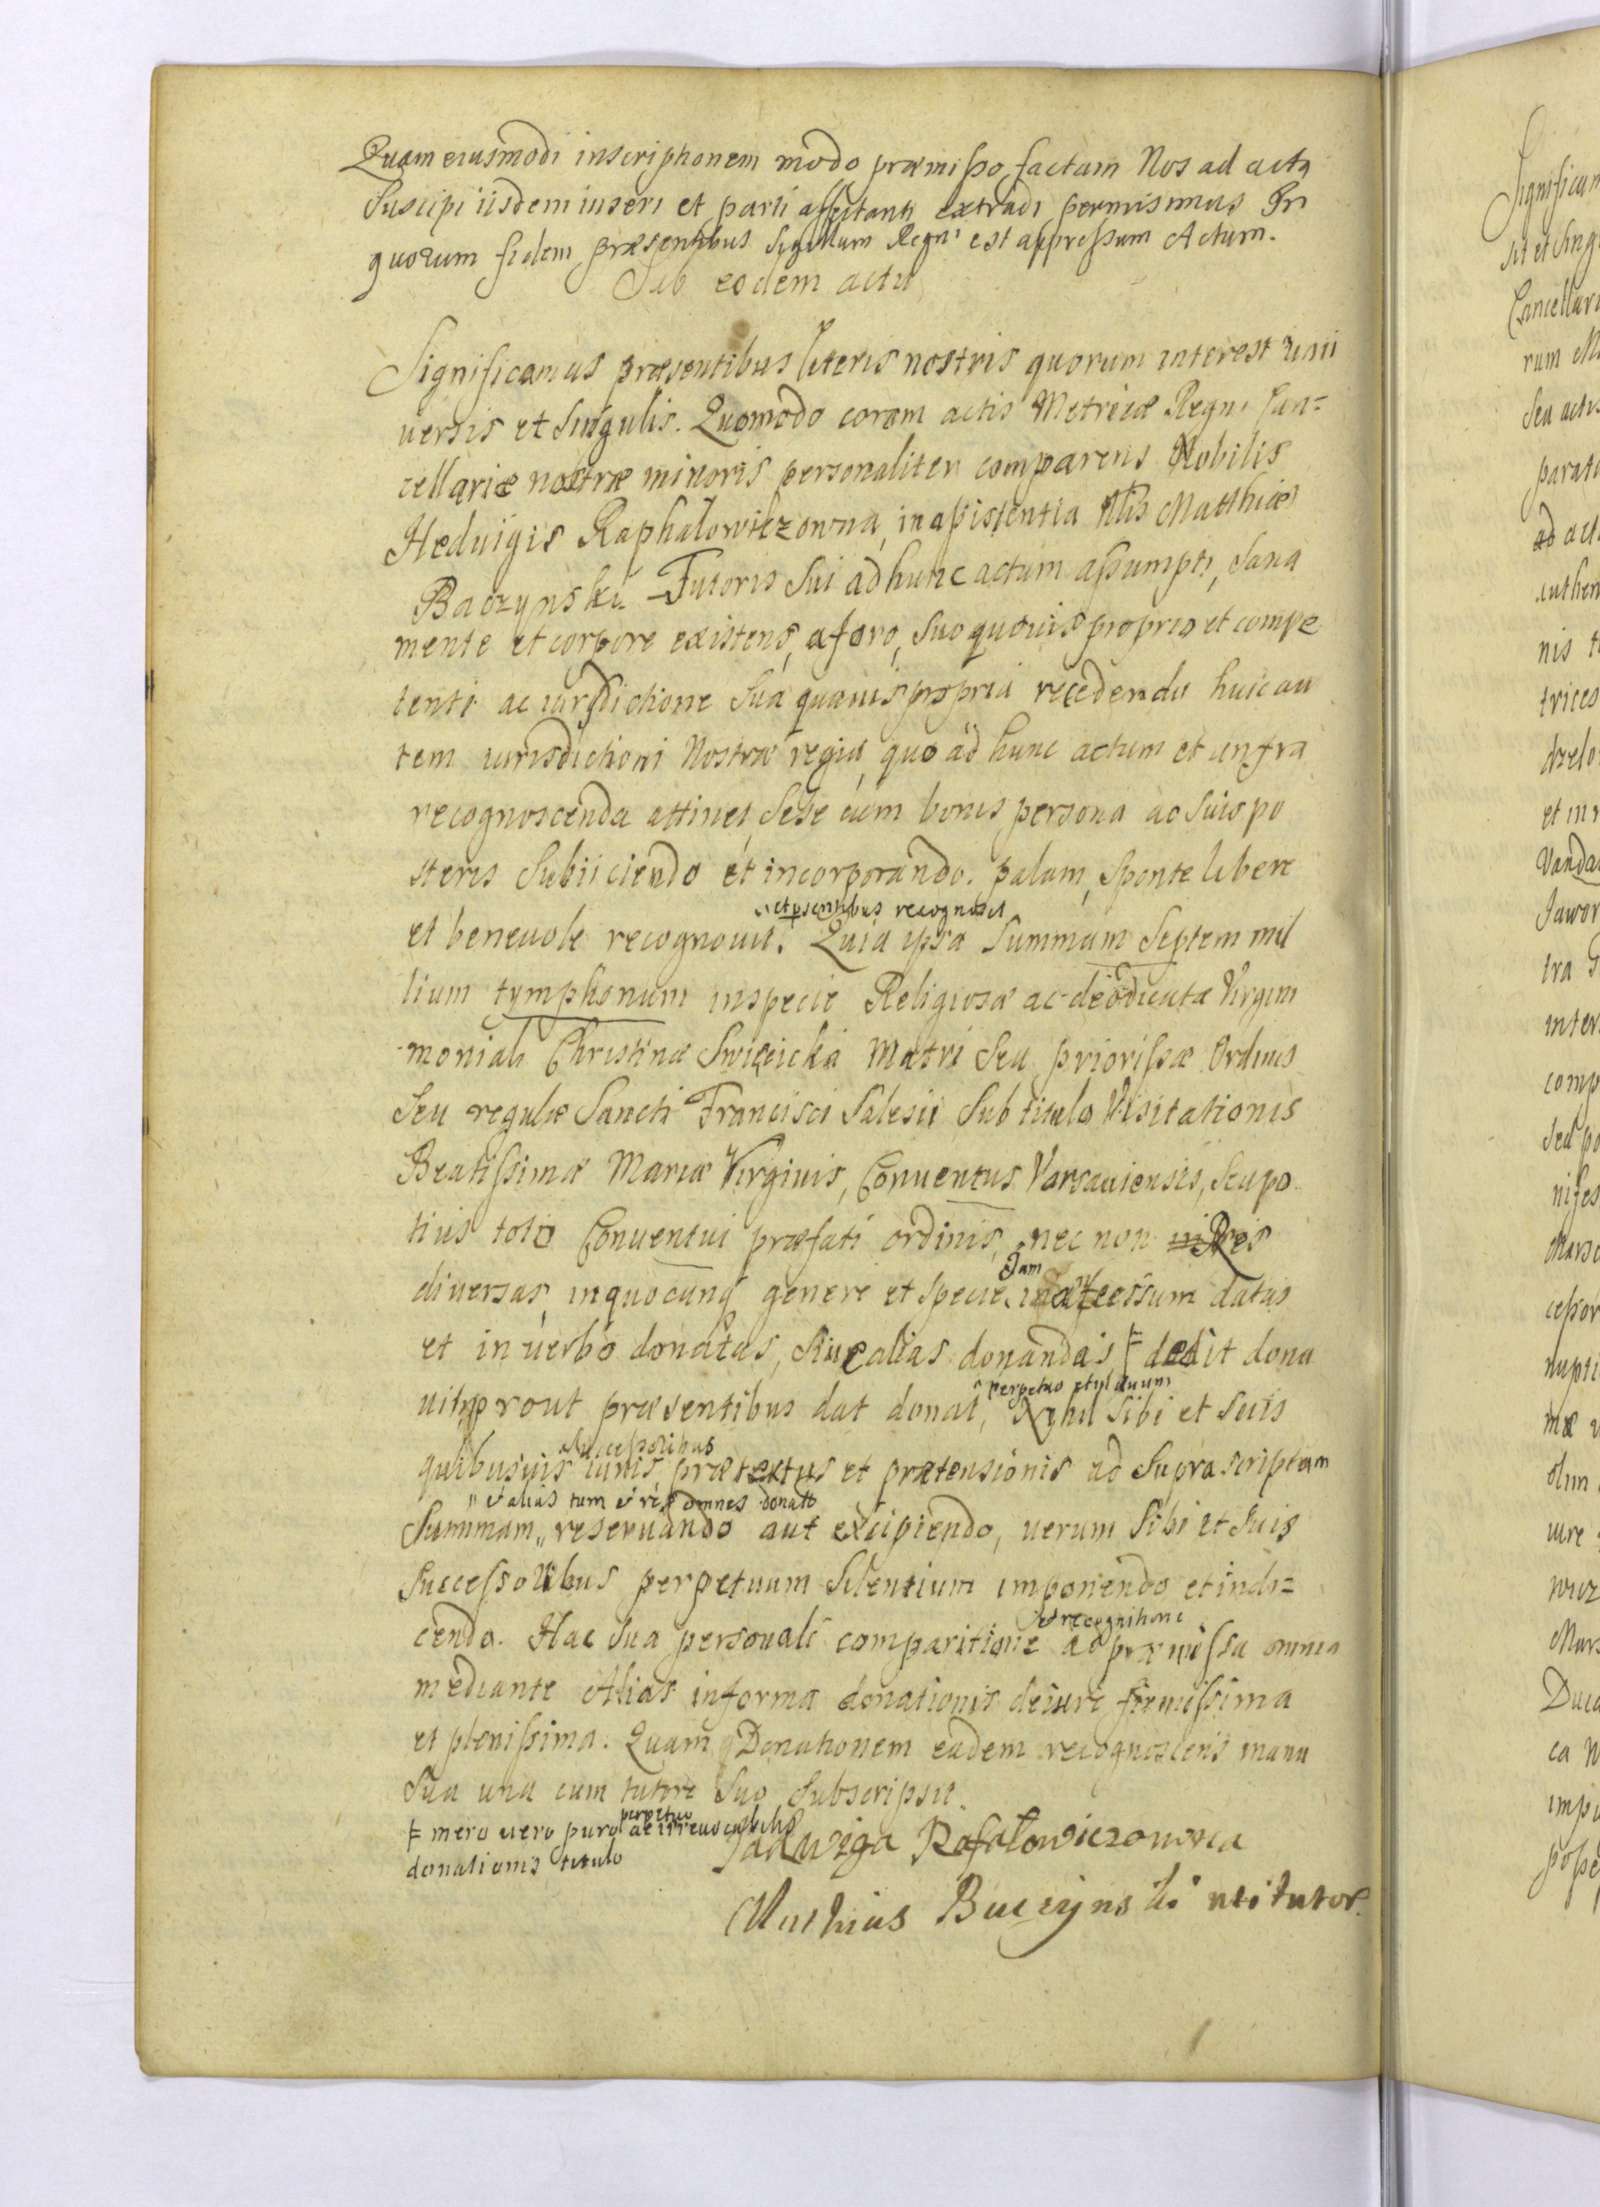 Quam eiusmodi inscriptionem modo præmisso factam Nos ad acta
Suscipi iisdem inseri et parti affectanti extradi permisimus In
quorum fidem præsentibus Sigillum Regni est appressum Actum.
Sub eodem actu
Significamus præsentibus literis nostris quorum interest uni
uersis et Singulis. Quomodo coram actis Metricæ Regni Can=
cellariæ nostræ minoris personaliter comparens Nobilis
Heduigis Raphalowiczowna, in assistentia Nlis Matthiæ
Baczynski Tutoris Sui ad hunc actum assumpti, Sana
mente et corpore existens, a foro, Suo quouis proprio et compe
tenti ac iurisdictione Sua quauis propria recedendo huic au
tem iurisdictioni Nostræ regiæ, quo ad hunc actum et infra
recognoscenda attinet, Sese cum bonis persona ac Suis po
steris Subiiciendo et incorporando. palam, Sponte libere
et præsentibus recognoscit
et beneuole recognouit. Quia ipsa Summam Septem mil
lium tymphonum in specie Religiosæ ac deodicatæ Virgini
moniali Christinæ Swięcicka Matri Seu priorissæ Ordinis
Seu regulæ Sancti Francisci Salesii Sub titulo Visitationis
Beatissimæ Mariæ Virginis, Conuentus Varsauiensis, Seu po
tius toti Conuentui præfati ordinis, nec non Res
Iam
diuersas, in quocunq genere et Specie datas
et in uerbo donatas, Siue alias donandas, ╞ dedit dona
perpetuo
uit prout præsentibus dat donat, Nihil Sibi et Suis
Successoribus
quibusuis iuris prætextus et prætensionis ad Supra scriptam
" et alias tum et res omnes donatas
Summam " reseruando aut excipiendo, uerum Sibi et Suis
Successoribus perpetuum Silentium imponendo et indi=
et recognitione
cendo. Hac Sua personali comparitione ad præmissa omnia
mediante Alias in forma donationis de iure firmissima
et plenissima. Quam Donationem eadem recognoscens manu
Sua una cum tutore Suo Subscripsit.
perpetuo
╞ mero uero puro ac irreuocabilis
donationis titulo
Jadwiga Rafałowiczowna
Mathias Baczynski uti tutor.